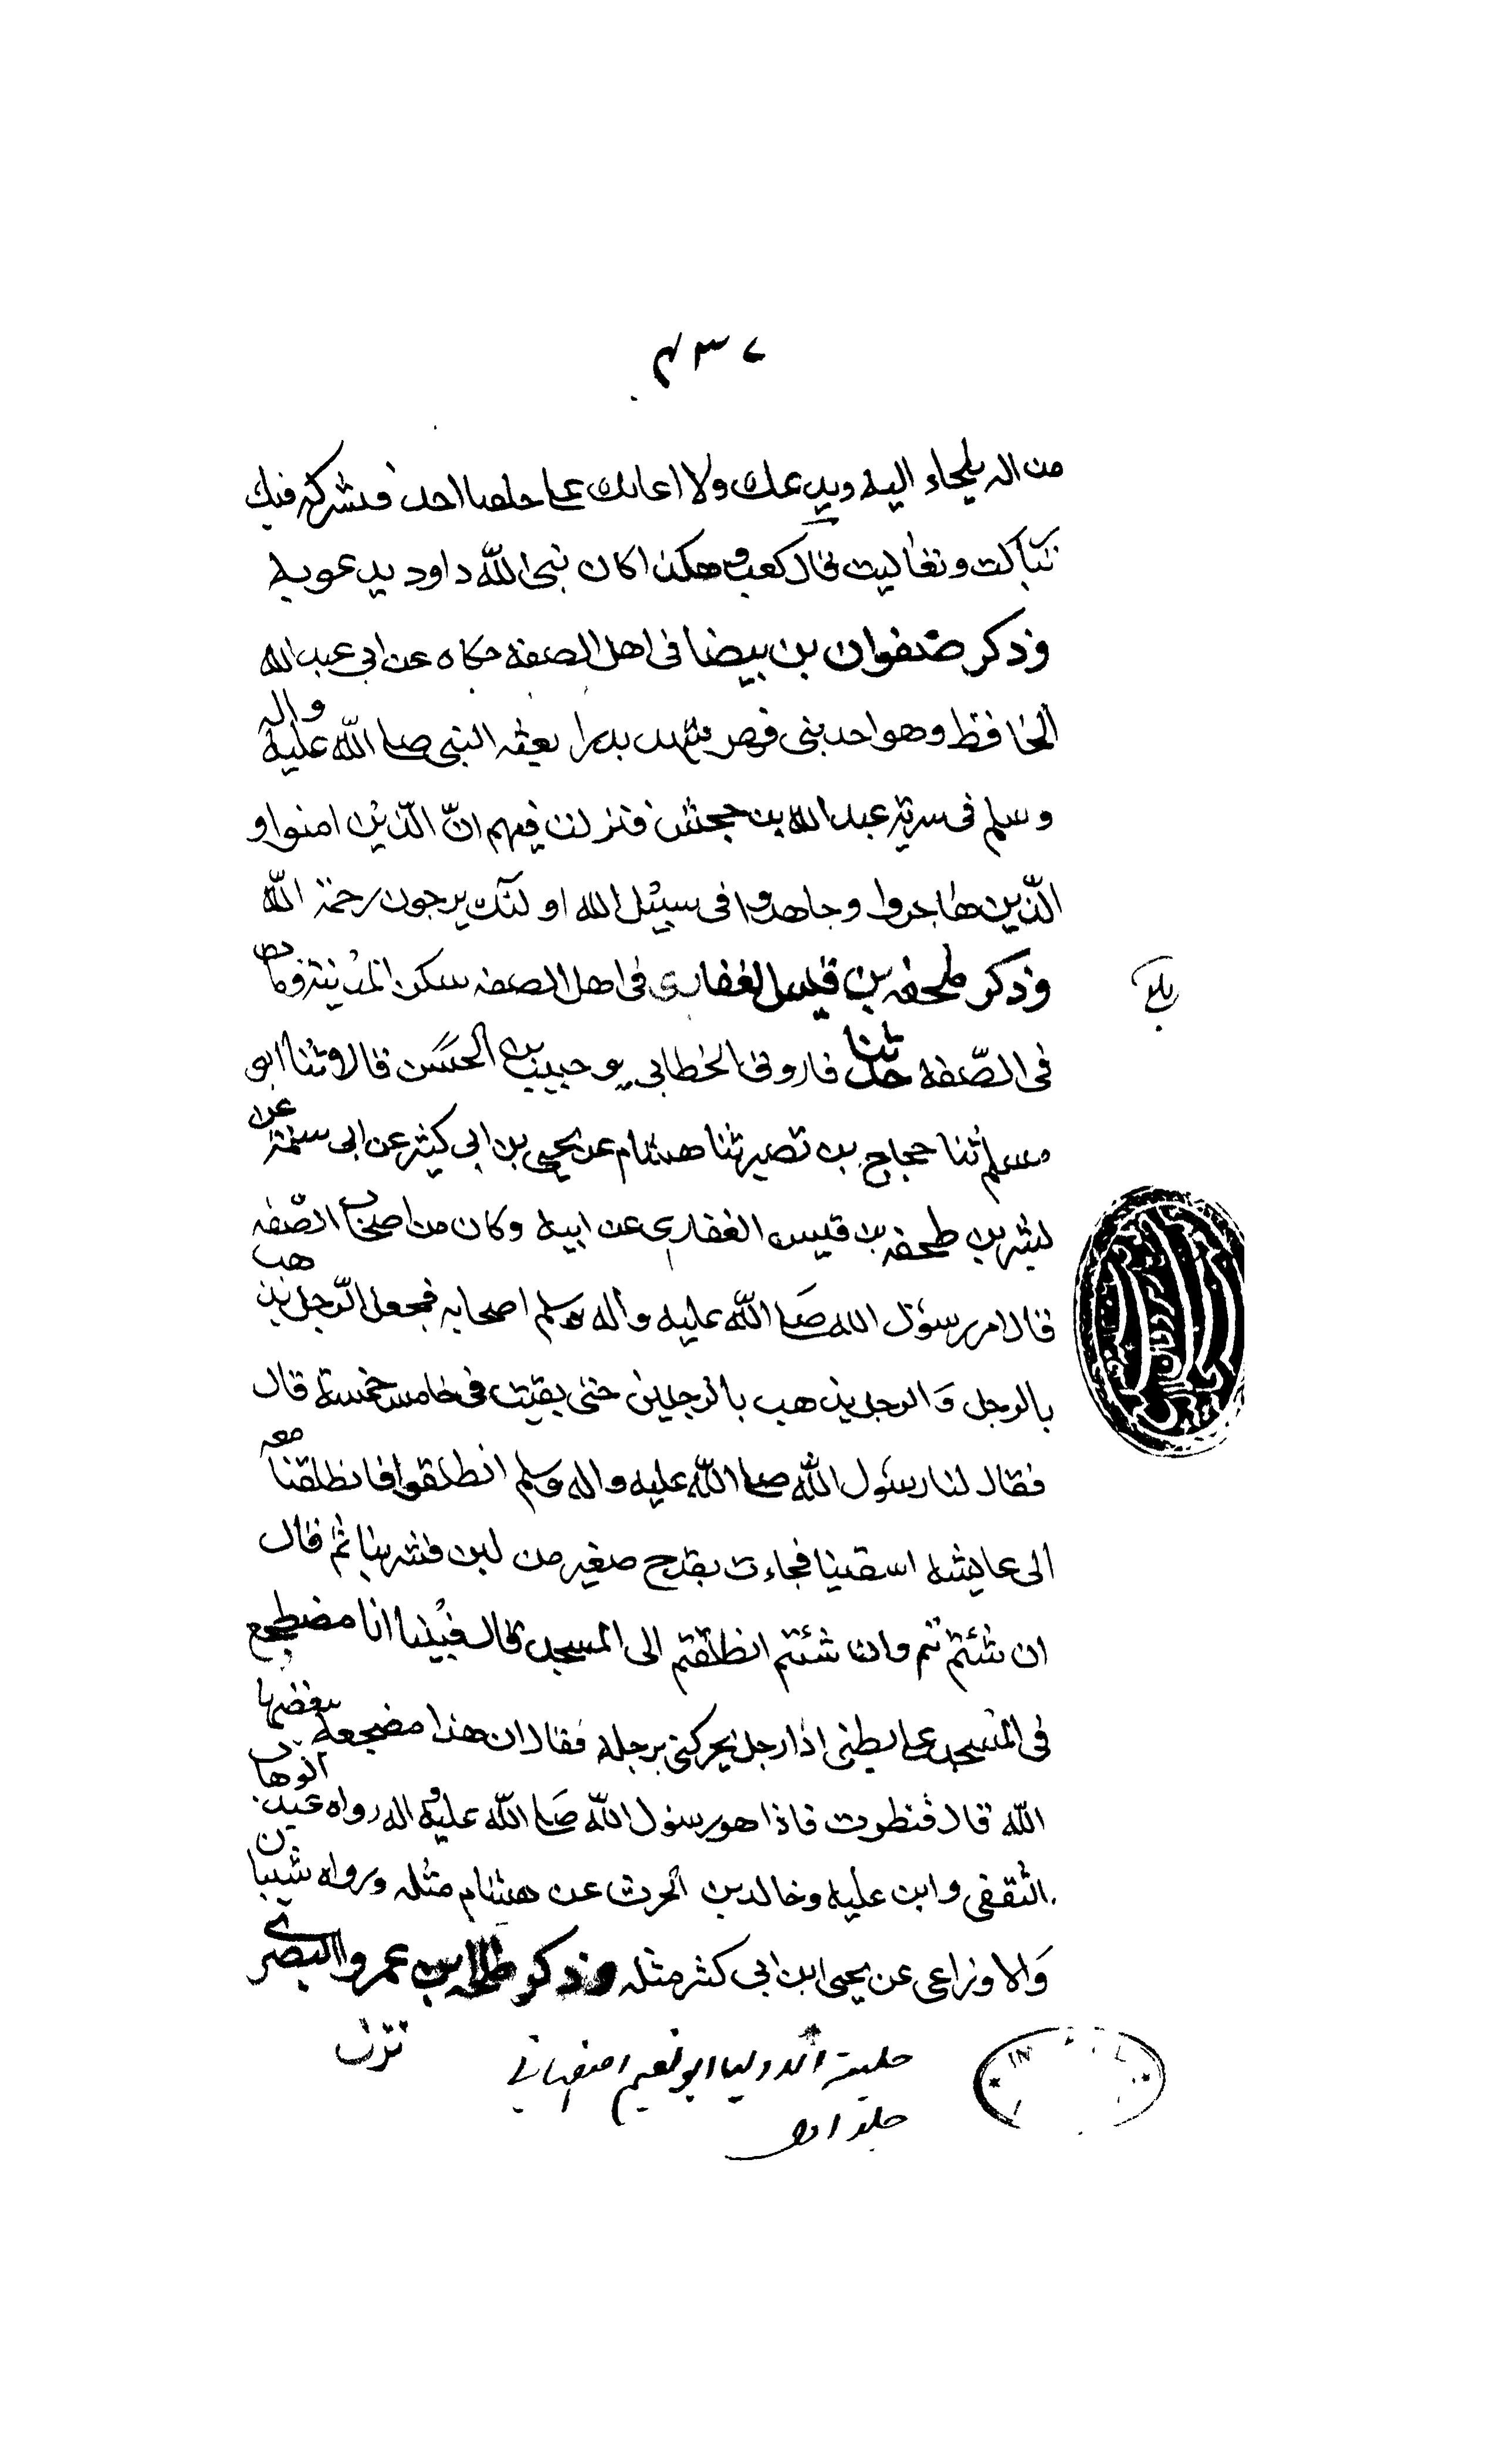 ٤٣٧
من اله يلجاء اليه ويدعك ولا اعانك على خلقنا احد فنشركه فيك
تباركت وتعاليت قال كعب وهكذا كان نبى الله داود يدعو به
وذكر صفوان بن بيضا فى اهل الصفه حكاه عن ابى عبد الله
الحافظ وهو احد بنى فهر شهد بدرا بعثه النبى صلى الله عليه واله
وسلم فى سرية عبد الله بن جحش فنزلت فيهم انّ الذين امنوا و
الّذين هاجروا وجاهدوا فى سبيل الله اولئك يرجون رحمة الله
وذكر طحفه بن قيس الغفارى فى اهل الصفه سكن المدينة ومات
فى الصّفه حدثنا فاروق الخطابى وحبيب بن الحسن قالا ثنا ابو
مسلم ثنا حجاج بن نصير ثنا هشام عن يحيى بن ابى كثير عن ابى سلمة عن
ليثر بن طحفه بن قيس الغفارى عن ابيه وكان من اصحاب الصّفه
قال امر رسول الله صلى الله عليه واله وسلم اصحابه فجعل الرّجل يذهب
بالرجل والرجل يذهب بالرجلين حتى بقيت فى خامس خمسة قال
فقال لنا رسول الله صلى الله عليه واله وسلم انطلقوا فانطلقنا معه
الى عايشه اسقينا فجاءت بقدح صغير من لبن فشربنا ثم قال
ان شئتم نتم وان شئتم انطلقتم الى المسجد قال فبينا انا مضطجع
فى المسجد على بطنى اذا رجل يحركنى برجله فقال ان هذا مضجعة يبغضها
الله قال فنظرت فاذا هو رسول الله صلى الله عليه واله رواه عبد الوهاب
الثقفى وابن عليه وخالد بن الحرث عن هشام مثله ورواه شيبان
والاوزاعى عن يحيى ابن ابى كثر مثله وذكر طلحه بن عمرو البصرى
نزل
حلية الاوليا ابو نعيم اصفهانى
جلد اول